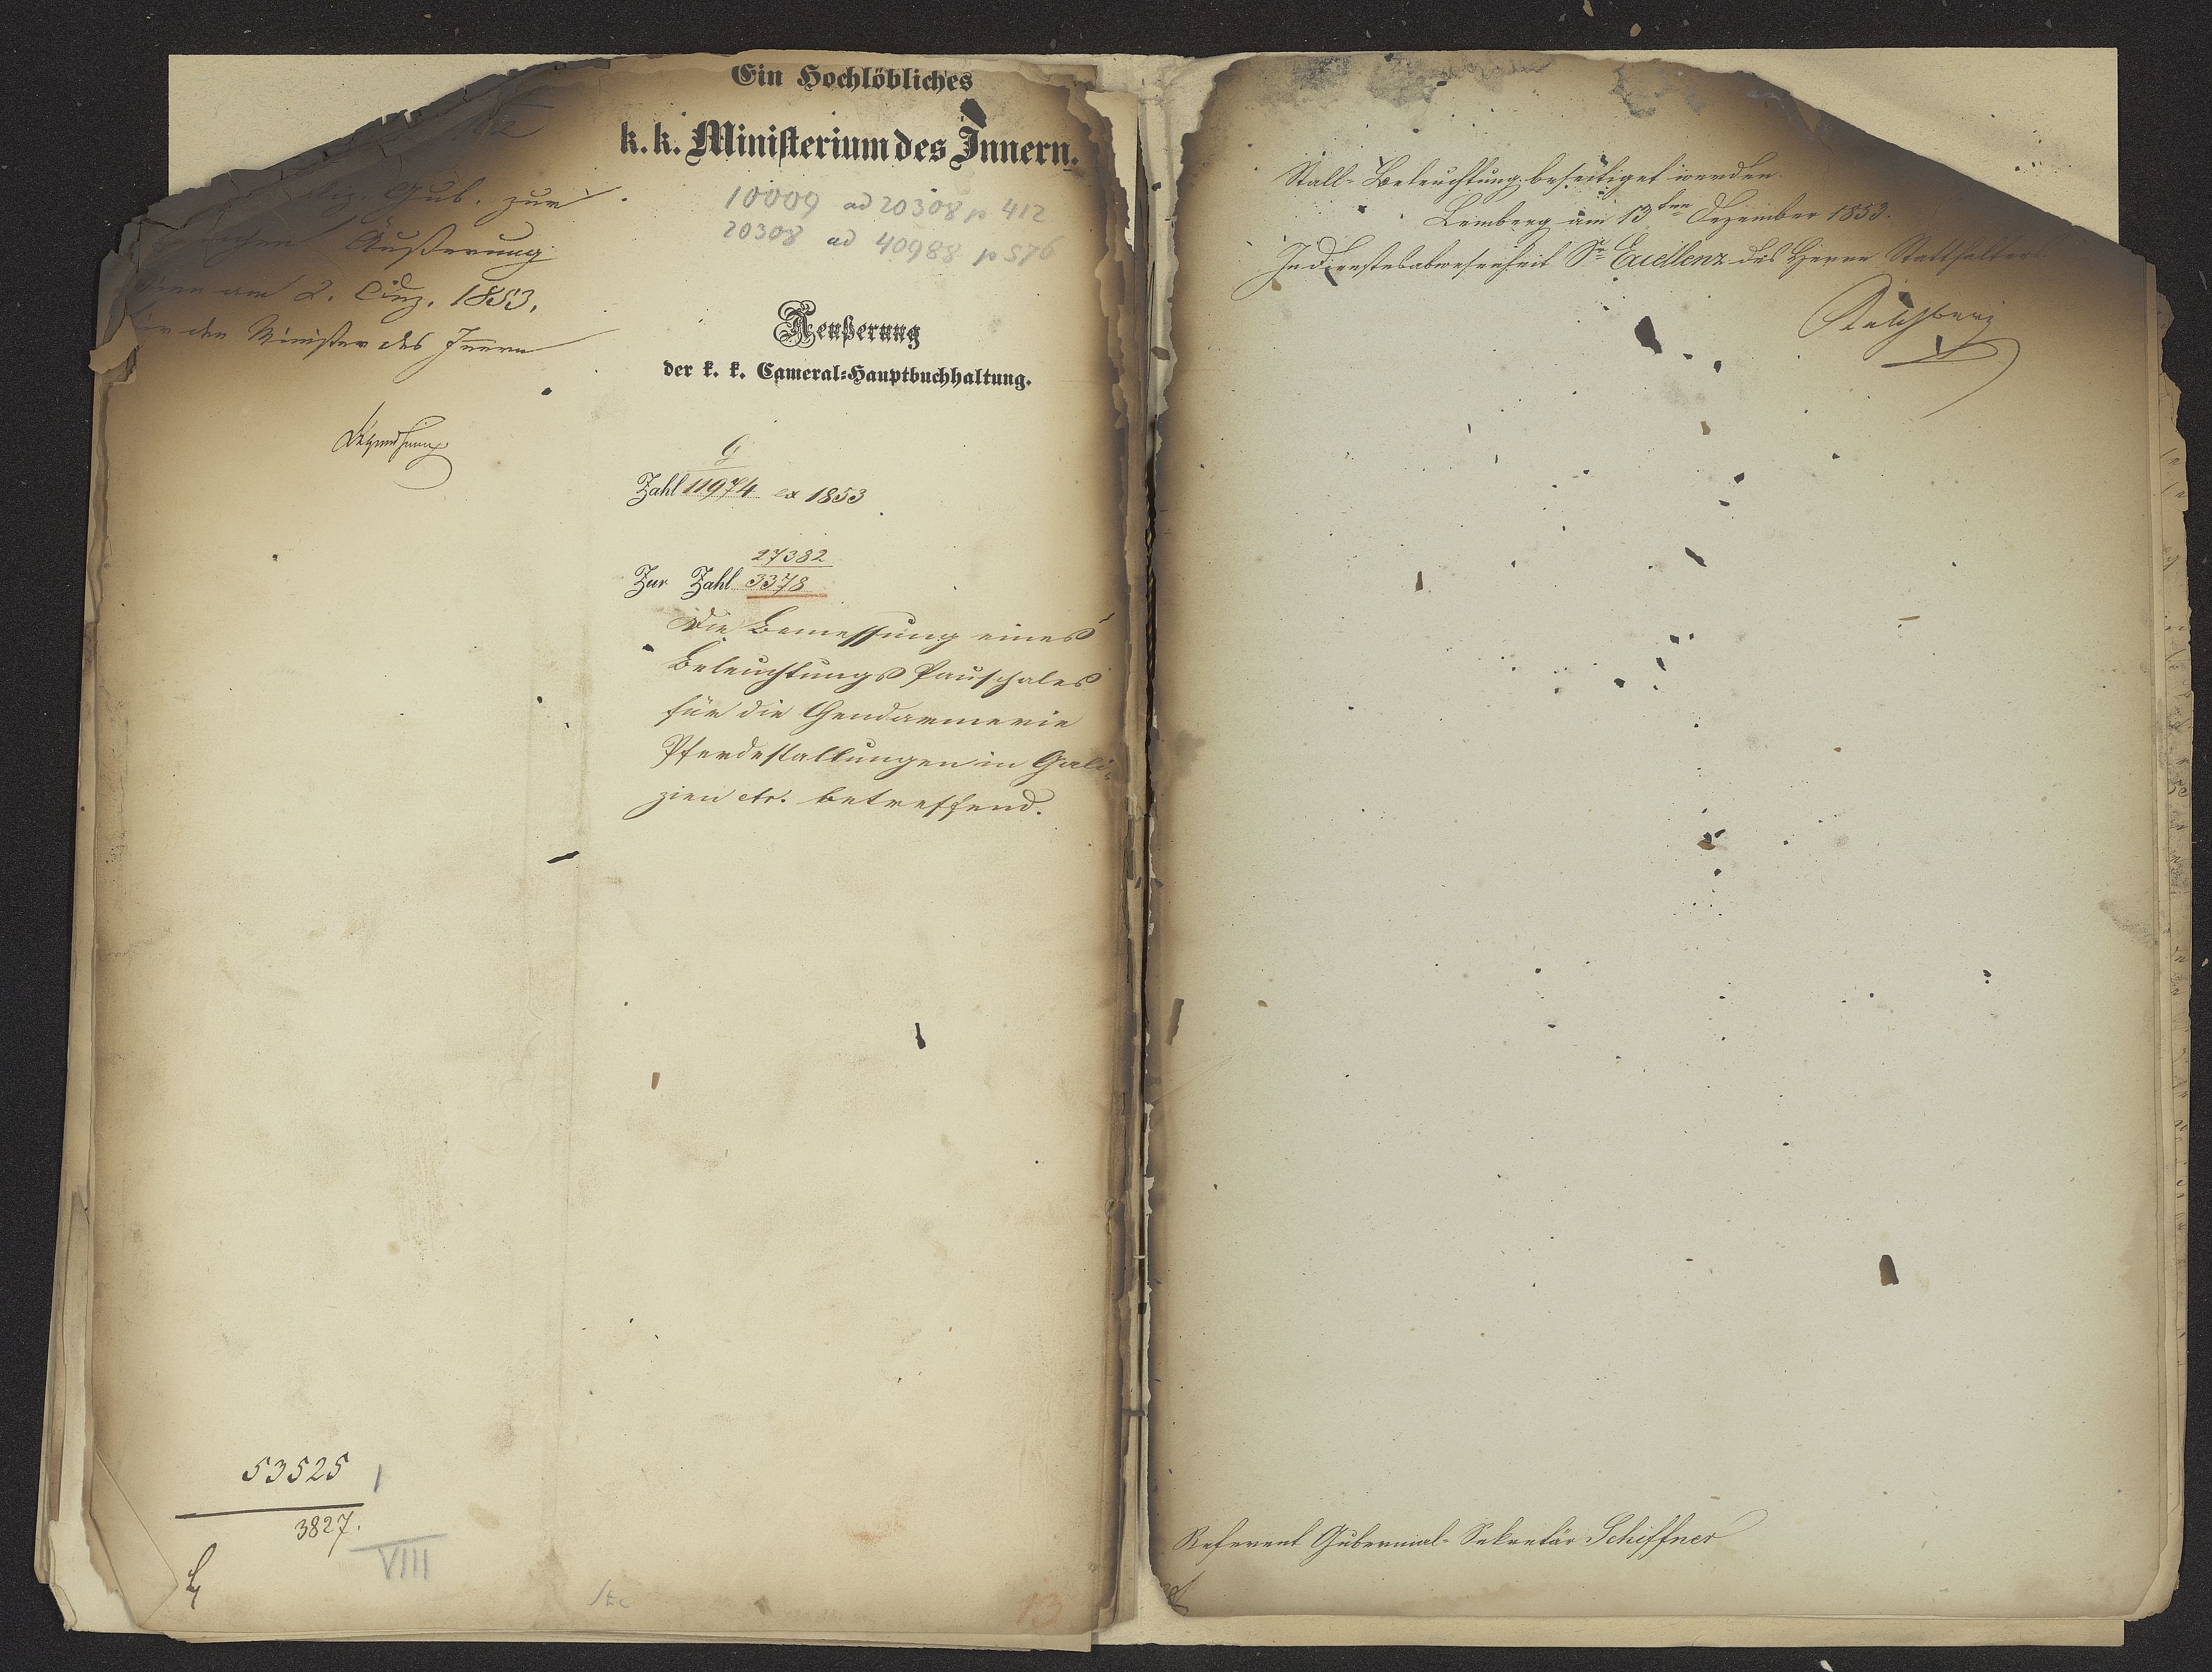 Gub. zur
Äußerung
am 2. Dez. 1853.
den Minister des Innern
53525
3827.
VIII
Ein Hochlöbliches
k. k. Ministerium des Innern.
10009 ad 20308 p 412
20308 ad 40988 p 576
Aeußerung
der k. k. Cameral-Hauptbuchhaltung.
Zahl 11974 ex 1853
27382
Zur Zahl 3378
Die Bemessung eines
Beleuchtungs Pauschales
für die Gendarmerie
Pferdestallungen in Gali-
zien etc. betreffend.
13
Stall-Beleuchtung beseitiget werden.
Lemberg am 13ten Dezember 1853.
In Dienstesabwesenheit Sr Excellenz des Herrn Statthalters
Referent Gubernial-Sekretär Schiffner